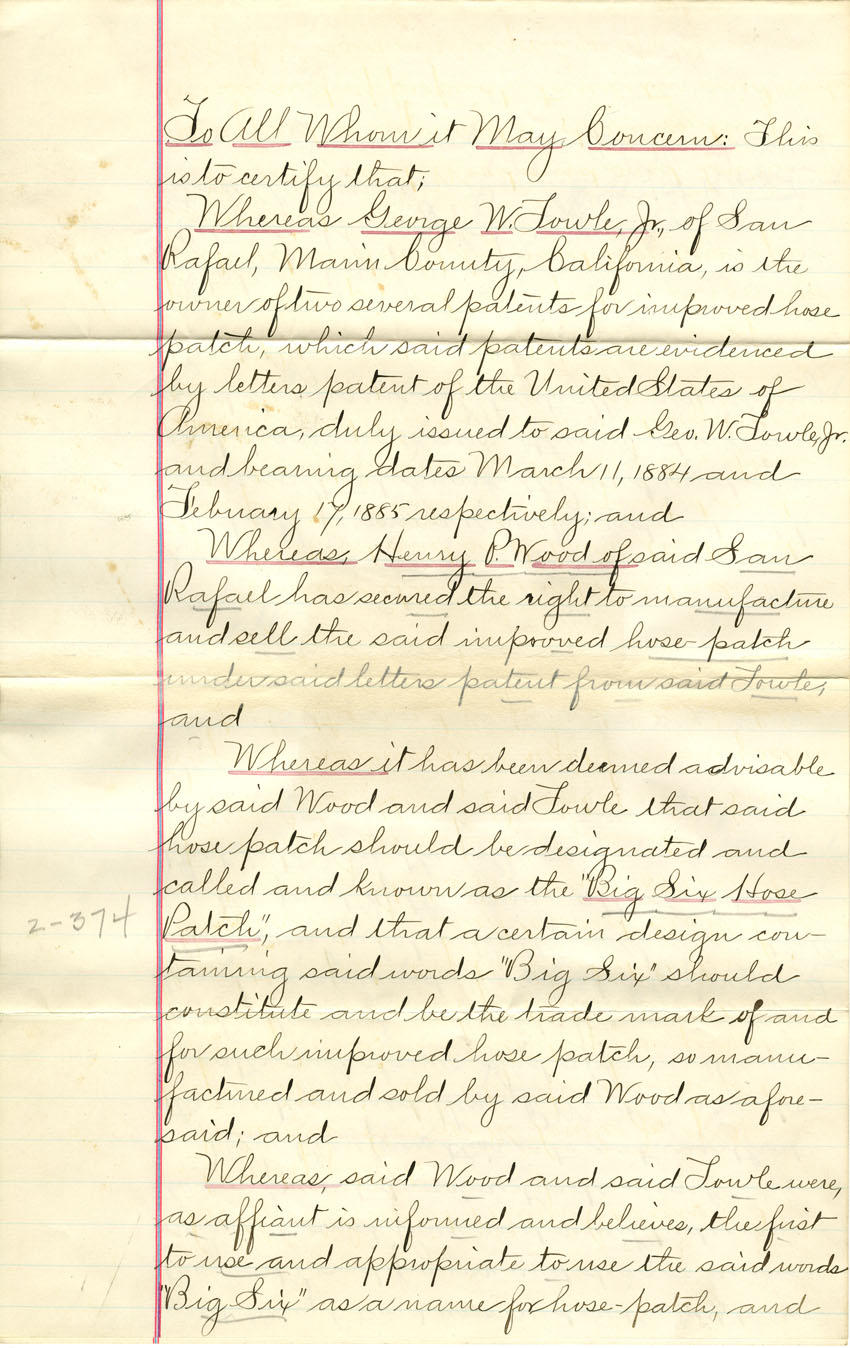 To All Whom it May Concern: This
is to certify that;
Whereas George W. Fowle, Jr., of San
Rafael, Marin County, California, is the
owner of two several patents for improved hose
patch, which said patents are evidenced
by letters patent of the United States of
America, duly issued to said Geo. W. Fowle, Jr.
and bearing dates March 11, 1884 and
February 17, 1885 respectively; and
Whereas, Henry P. Wood of said San
Rafael has secured the right to manufacture
and sell the said improved hose-patch
under said letters patent from said Fowle;
and
Whereas it has been deemed advisable
by said Wood and said Fowle that said
hose patch should be designated and
called and known as the "Big Six Hose
2-374
Patch", and that a certain design con-
taining said words "Big Six" should
constitute and be the trade mark of and
for such improved hose patch, so manu-
factured and sold by said Wood as afore-
said; and
Whereas, said Wood and said Fowle were,
as affiant is informed and believes, the first
to use and appropriate to use the said words
"Big Six" as a name for hose-patch, and